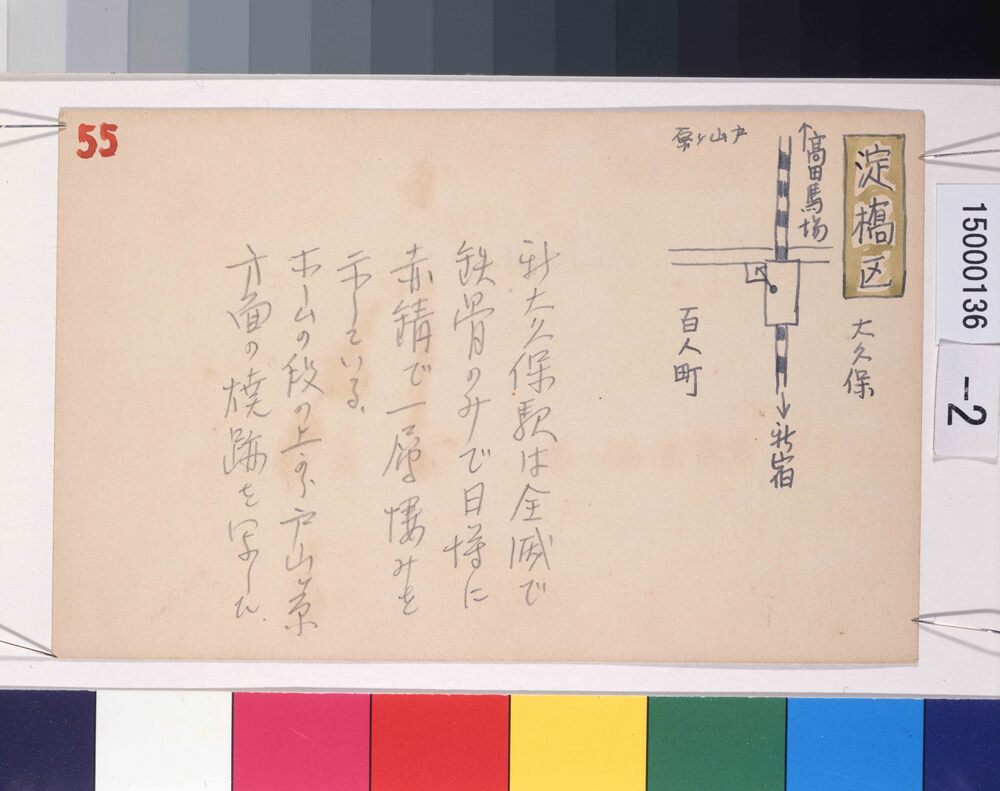 55
淀橋区
大久保
↑高田馬場
戸山ヶ原
百人町
↓新宿
新大久保駅は全滅で
鉄骨のみで日増に
赤錆で一層悽みを
示している。
ホームの段の上から戸山ヶ原
方面の焼跡を写した。
15000136
-2